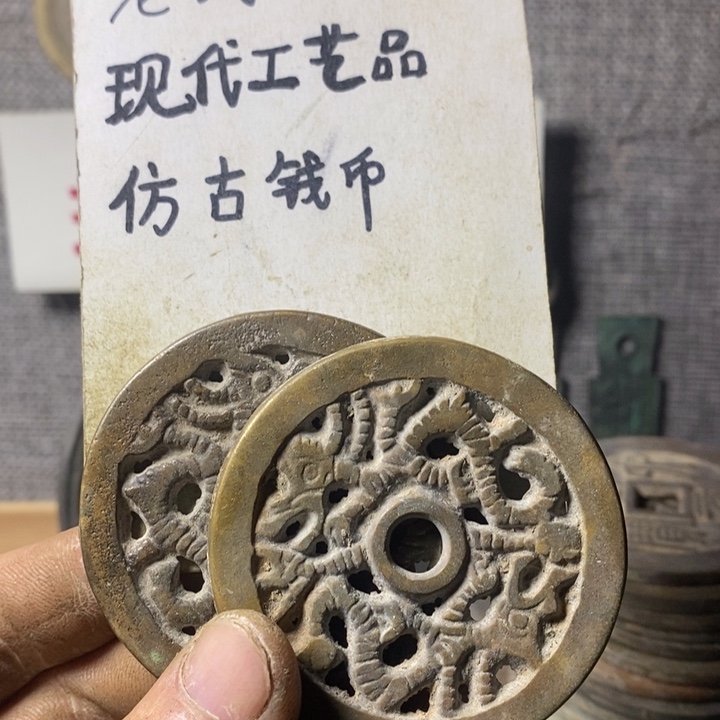 现代工艺品
仿古钱币